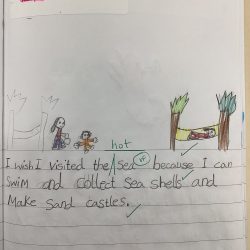 hot
I wish I visited the sea because I can
swim and collect sea shells and
Make sand castles.